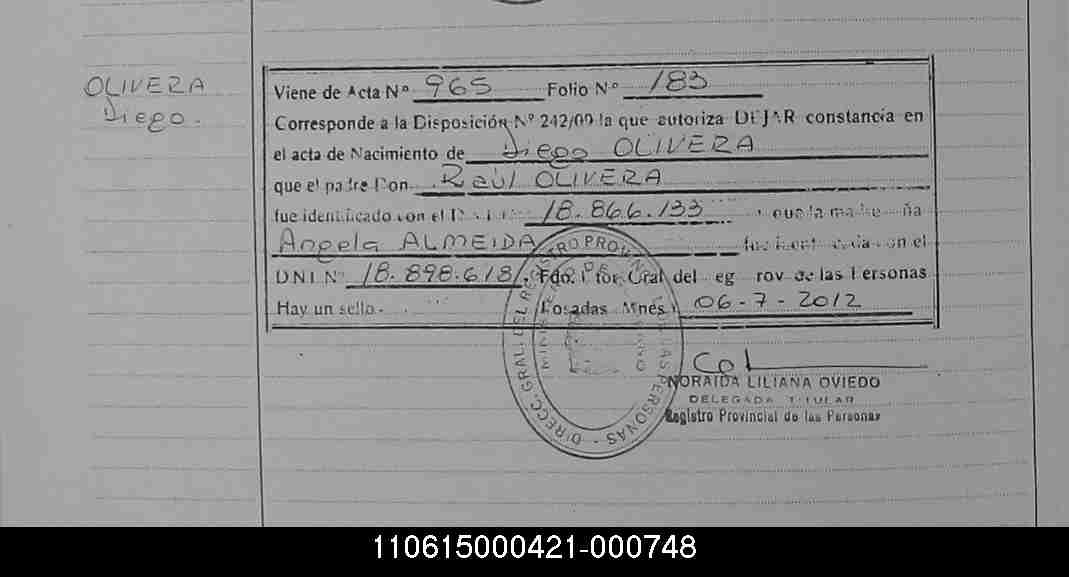 OLIVERA
Diego.
Viene de Acta Nº 965 Folio Nº 183
Corresponde a la Disposición Nº 242/09 la que autoriza DEJAR constancia en
el acta de Nacimiento de Diego OLIVERA
que el padre Don Raúl OLIVERA
fue identificado con el 18.866.133 que la madre
Angela ALMEIDA fue identificada con el
DNI Nº 18.898.618 Fdo. Gral del rov de las Personas
Hay un sello. Posadas Mnes 06-7-2012
DIRECC. GRAL. DEL REGISTRO PROVINCIAL DE LAS PERSONAS
NORAIDA LILIANA OVIEDO
DELEGADA TITULAR
Registro Provincial de las Personas
110615000421-000748